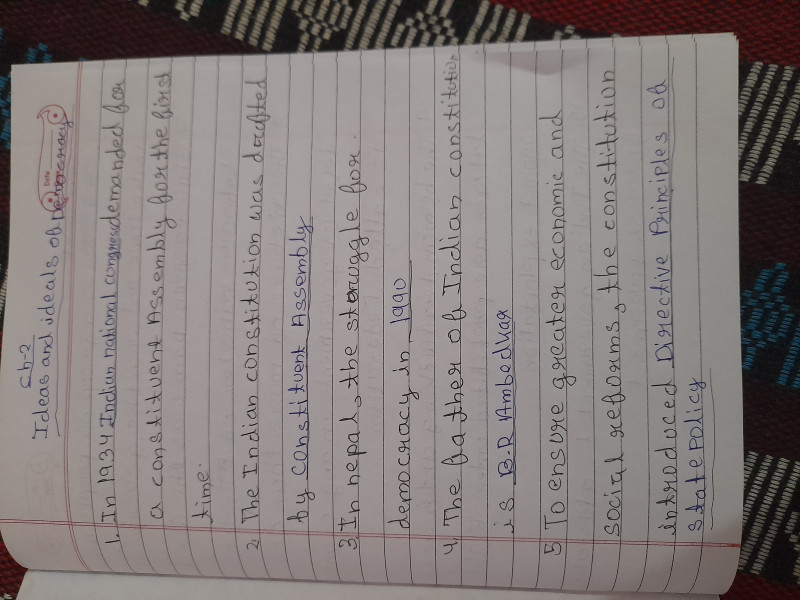 Date
Ch-2
Ideas and ideals of Democracy
1. In 1934 Indian national congress demanded for
a constituent Assembly for the first
time.
2. The Indian constitution was drafted
by constituent Assembly
3. In nepal, the struggle for
democracy in 1990
4. The father of Indian constitution
is B.R Ambedkar
5 To ensure greater economic and
social reforms, the constitution
introduced Directive Principles of
state Policy